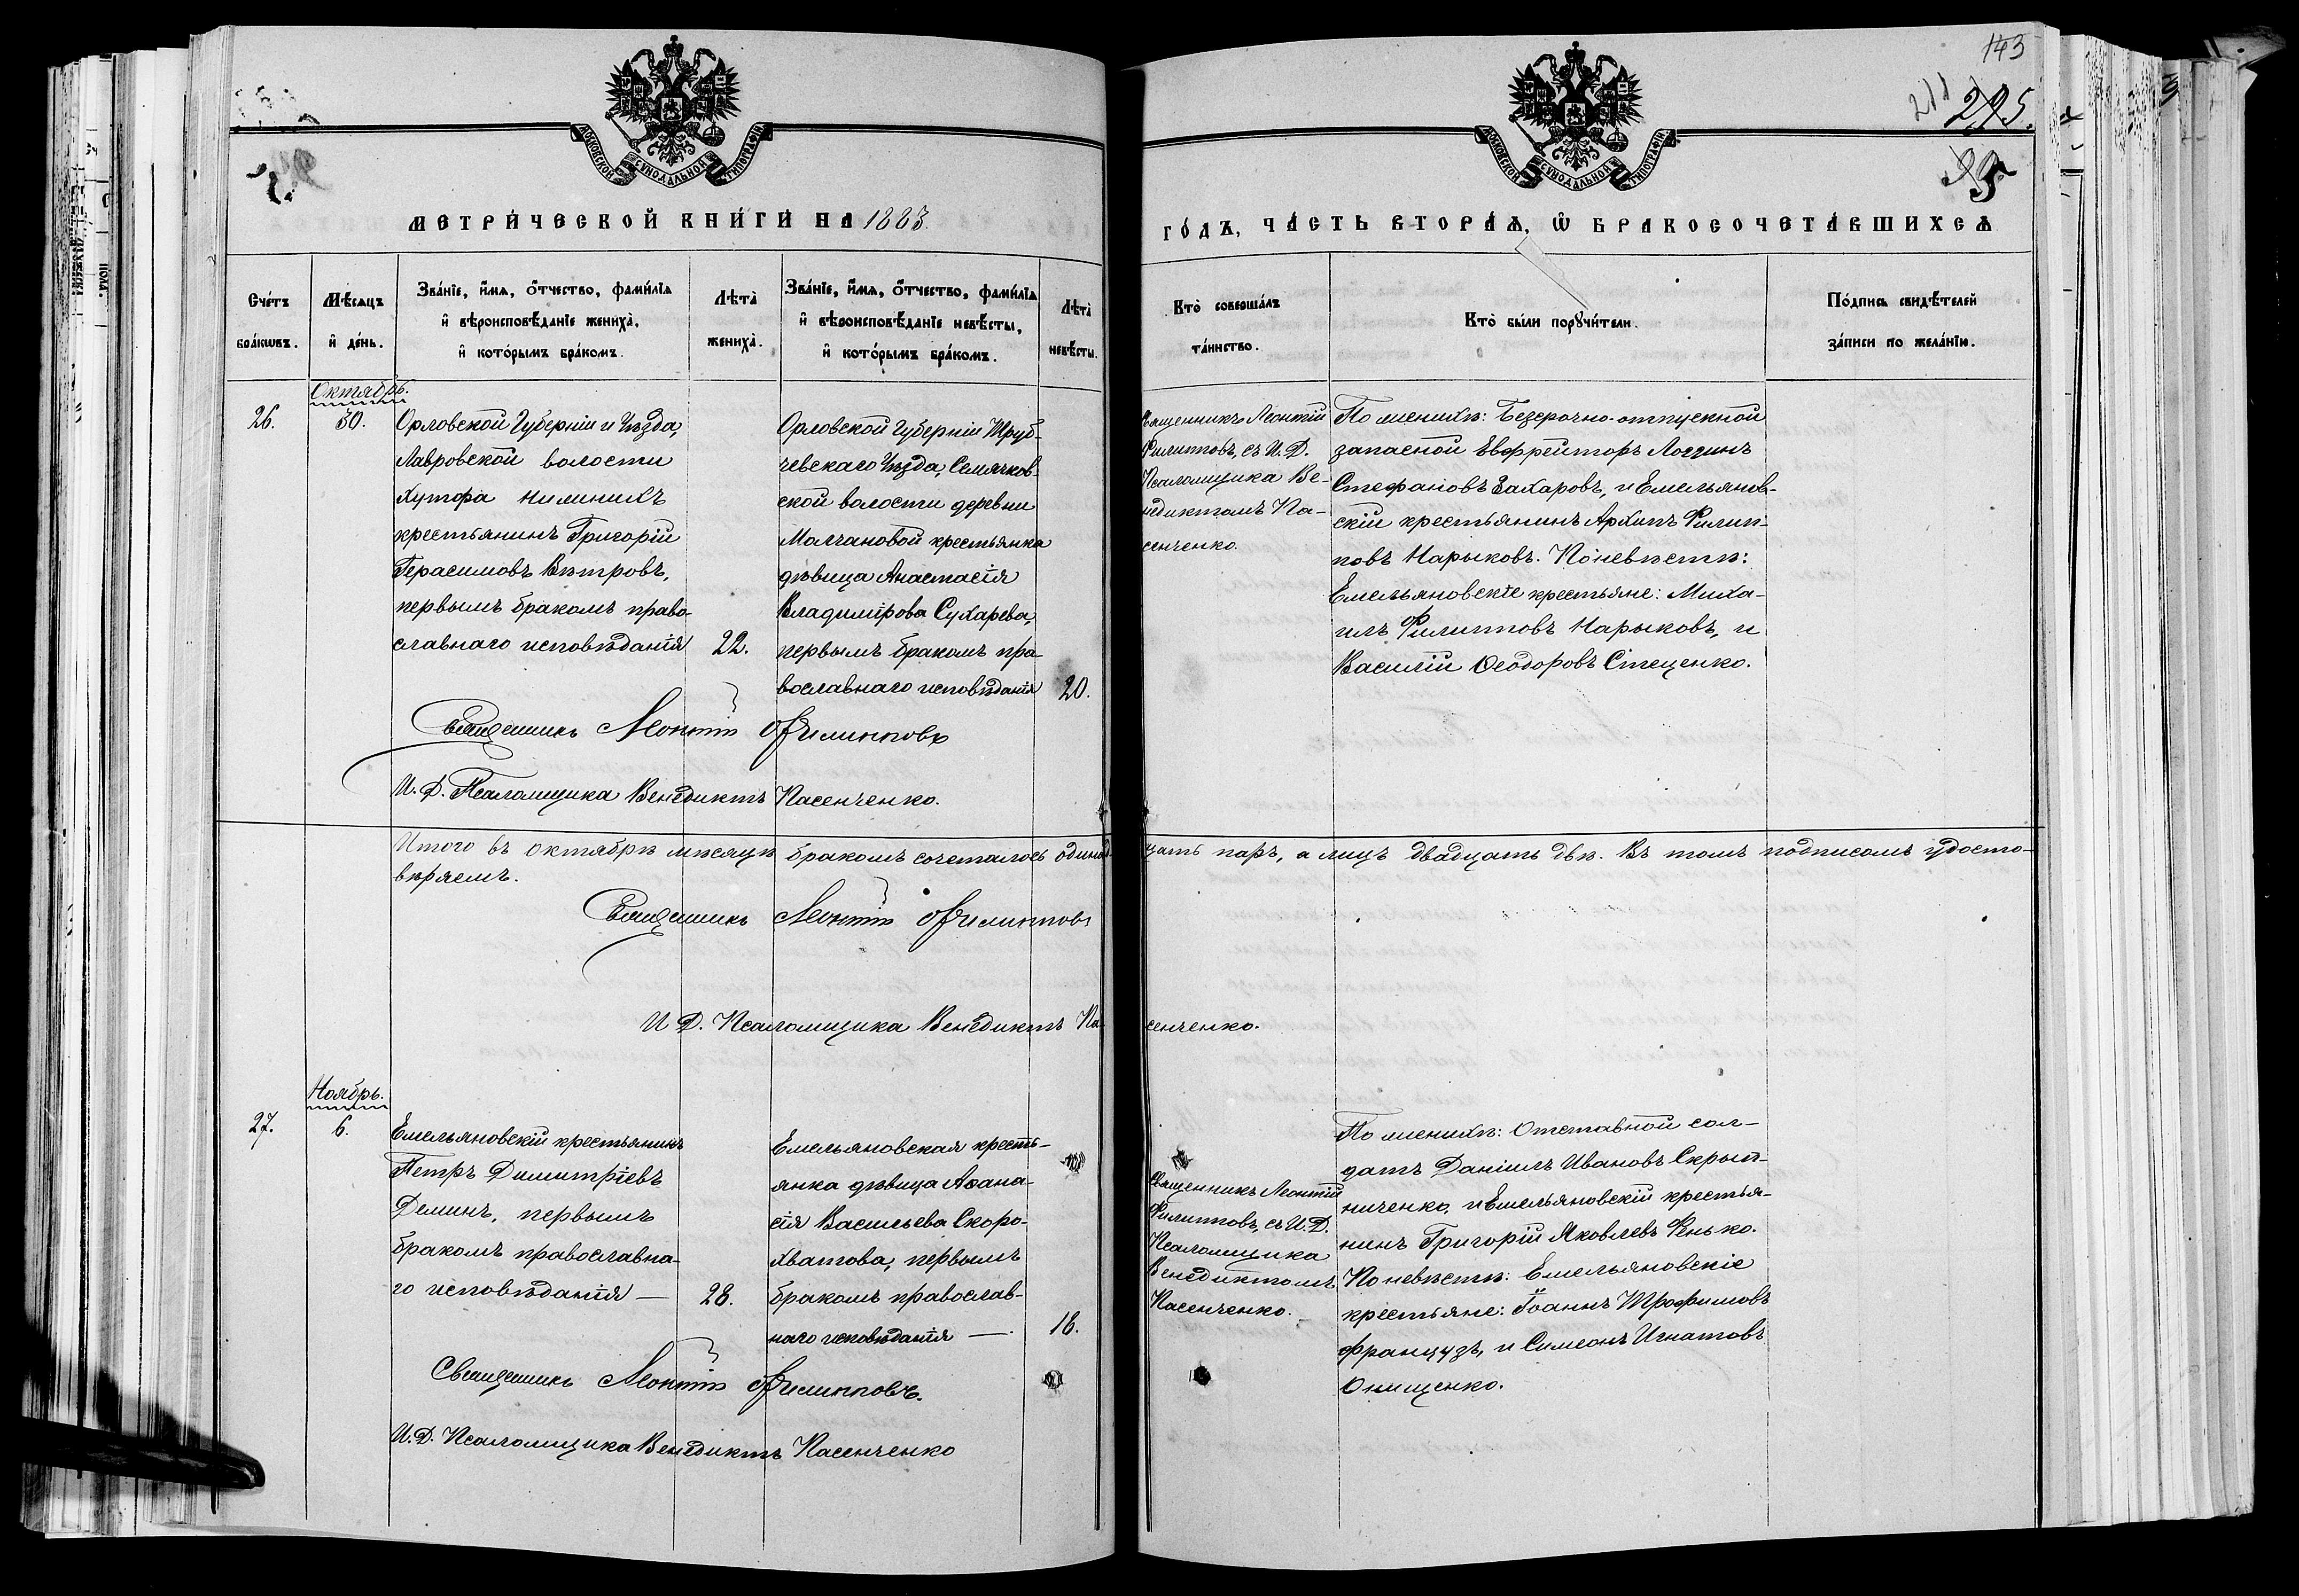 143
211 295.
МОСКОВСКОЙ СѴНОДАЛЬНОЙ ТИПОГРАФІИ
МОСКОВСКОЙ СѴНОДАЛЬНОЙ ТИПОГРАФІИ
МЕТРИ́ЧЕСКОЙ КНИ́ГИ НА 1883.
ГО́ДЪ, ЧА́СТЬ ВТОРА́Ѧ, Ѽ БРАКОСОЧЕТА́ВШИХСѦ
Сче́тъ
бра́кѡвъ.
Мѣ́сяцъ
и҆ де́нь.
Зва́нїе, и҆́мѧ, ѻ҆́тчество, фами́лїѧ
и҆ вѣроисповѣ́данїе жениха̀,
и҆ кото́рымъ бра́комъ.
Лѣ́та̀
жениха̀.
Зва́нїе, и҆́мѧ, ѻ҆́тчество, фами́лїѧ
и҆ вѣроисповѣ́данїе невѣ́сты,
и҆ кото́рымъ бра́комъ.
Лѣ́та̀
невѣ́сты.
Кто̀ соверша́лъ
та́инство.
Кто̀ бы́ли порꙋчи́тели.
По́дпись свидѣ́телей
за́писи по жела́нїю.
Октябрь.
26.
30.
Орловской Губерніи и Уѣзда,
Лавровской волости
хутора
крестьянинъ Григорій
Герасимовъ Вѣтровъ,
первымъ бракомъ право-
славнаго исповѣданія
22.
Орловской Губерніи Труб-
чевскаго Уѣзда, Семячков-
ской волости деревни
Молчановой крестьянка
дѣвица Анастасія
Владимірова Сухарева,
первымъ бракомъ пра-
вославнаго исповѣданія
20.
Священникъ Леонтій
Филипповъ, съ И. Д.
Псаломщика Ве-
недиктомъ Па-
сенченко.
По женихѣ: Безсрочно-отпускной
запасной Евфрейторъ Логгинъ
Стефановъ Захаровъ, и Емельянов-
скій крестьянинъ Архипъ Филип-
повъ Нарыковъ. По невѣстѣ:
Емельяновскіе крестьяне: Миха-
илъ Филипповъ Нарыковъ, и
Василій Ѳеодоровъ Стеценко.
Священникъ Леонтій Филипповъ
И. Д. Псаломщика Венедиктъ Пасенченко.
Итого въ октябрѣ мѣсяцѣ бракомъ сочеталось одинад-цать паръ, а лицъ двадцать двѣ. Въ томъ подписомъ удосто-
вѣряемъ.
Священникъ Леонтій Филипповъ
И. Д. Псаломщика Венедиктъ Па-сенченко.
Ноябрь.
27.
6.
Емельяновскій крестьянинъ
Петръ Димитріевъ
Деминъ, первымъ
бракомъ православна-
го исповѣданія —
28.
Емельяновская кресть-
янка дѣвица Аѳана-
сія Васильева Скоро-
хватова, первымъ
бракомъ православ-
наго исповѣданія —.
18.
Священникъ Леонтій
Филипповъ, съ И. Д.
Псаломщика
Венедиктомъ
Пасенченко.
По женихѣ: Отставной сол-
датъ Даніилъ Ивановъ Скрып-
ниченко, и Емельяновскій крестья-
нинъ Григорій Яковлевъ Фенько.
По невѣстѣ: Емельяновскіе
крестьяне: Іоаннъ Трофимовъ
Французъ, и Симеонъ Игнатовъ
Онищенко.
Священникъ Леонтій Филипповъ.
И. Д. Псаломщика Венедиктъ Пасенченко